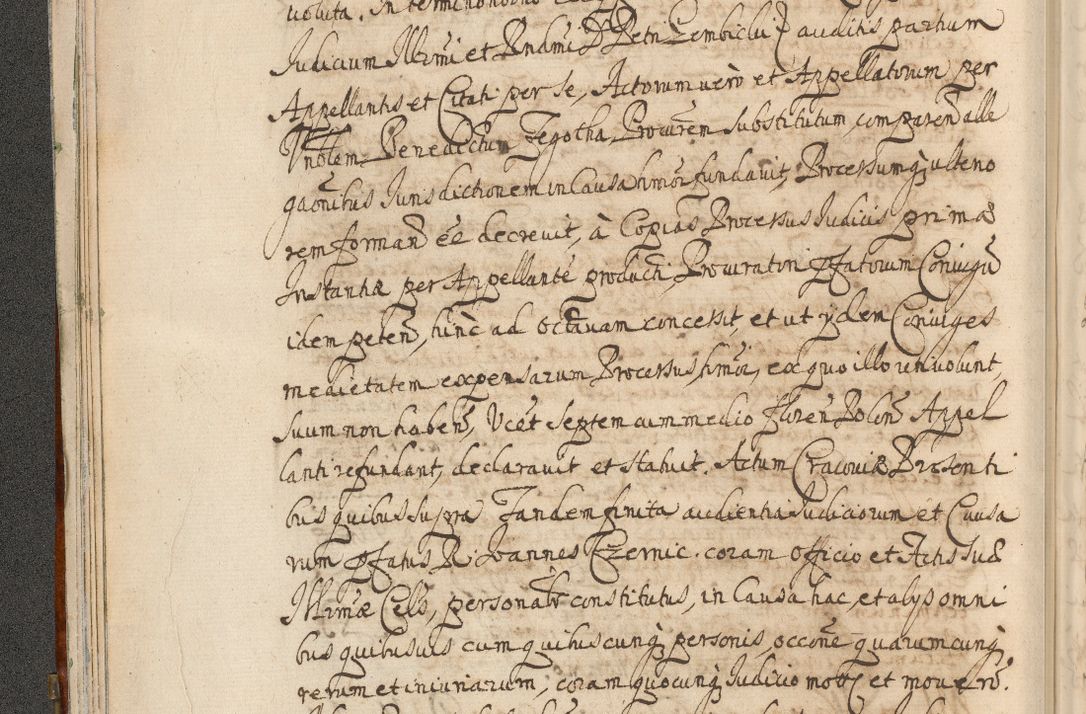 voluta. In termino
Judicium Illrmi et Rndmi D Petri Gembicki auditis partium
Appellantis et Citati per se, Actorum vero et Appellatorum per
Nobtem Benedictum Zegotha, Procurem substitutum, comparen alle
gaonibus Jurisdictionem in Causa hmoi fundavit, Processumq ulterio
rem forman ee decrevit, à Copias Processus Judicij primae
Instantiae per Appellante producti, Procuratori pfatorum Coniugu
idem peten, hinc ad octavam concessit, et ut ydem Coniuges
medietatem expensarum Processus hmoi, ex quo illo uti volunt,
suum non haben, Vcet septem cum medio floren Polon Appel
lanti refundant, declaravit et statuit. Actum Cracoviae Presenti
bus quibus supra Tandem finita audientia Judiciorum et Causa
rum pfatus R. Joannes Czernic. coram officio et Actis Jud
Illrmae Cels, personabr constitutus, in Causa hac, et alys omni
bus quibusvis cum quibuscunq personis, occone quarumcunq
rerum et iniuriarum, coram quocunq Judicio mot et mover.